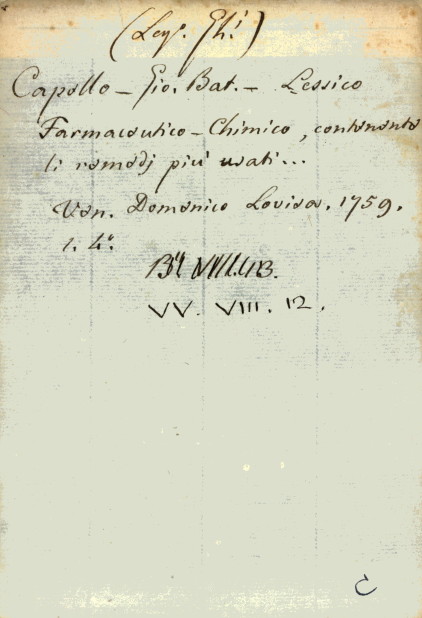 (Leg. Ghi)
Capello - Gio. Bat. - Lessico
Farmaceutico - Chimico, contenente
li remedj più usati...
Ven. Domenico Lovisa. 1759.
1. 4°.
VV. VIII. 12.
C